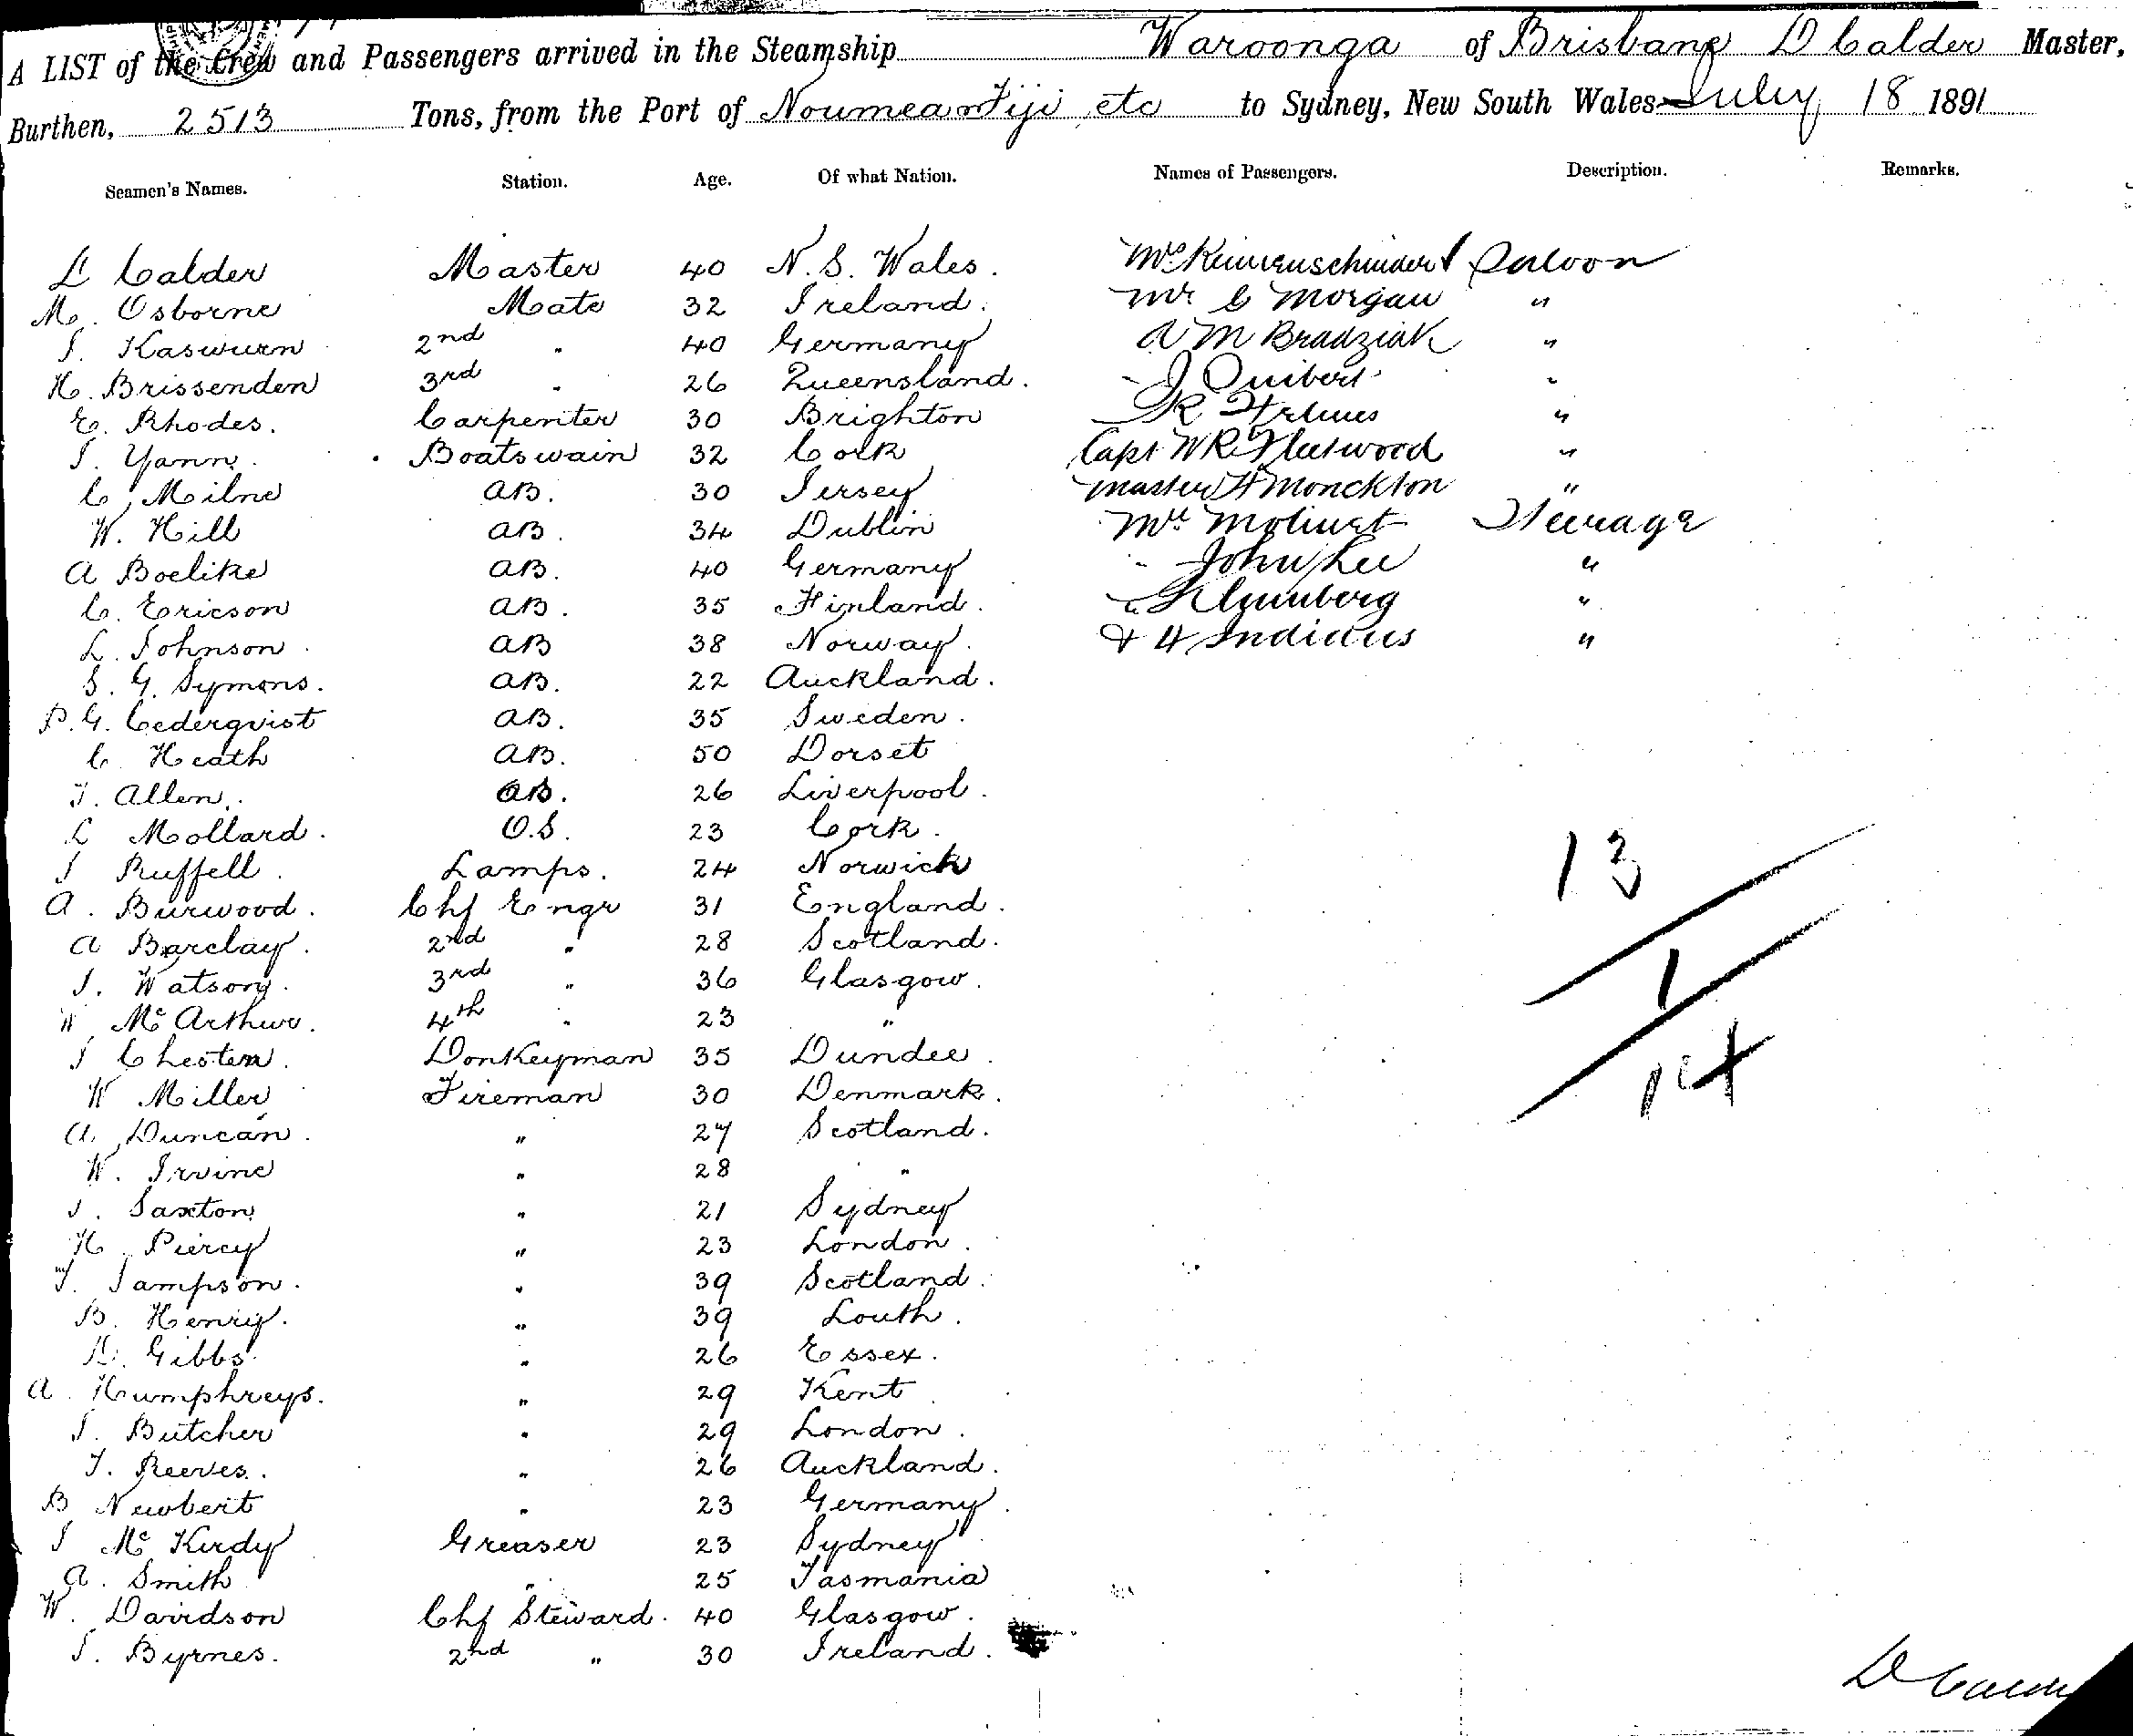 A LIST of the Crew and Passengers arrived in the Steamship Waroonga of Brisbane D Calder Master,
Burthen, 2513 Tons, from the Port of Noumea Fiji etc to Sydney, New South Wales July 18 1891
Seamen's Names. Station. Age. Of what Nation. Names of Passengers. Description. Remarks.
D Calder Master 40 N. S. Wales. Saloon
M. Osborne Mate 32 Ireland. Mr C Morgan "
J. Kaswurn 2nd " 40 Germany A M Bradziak "
H. Brissenden 3rd " 26 Queensland. J Quibert "
E. Rhodes. Carpenter 30 Brighton R "
J. Yann. Boatswain 32 Cork Capt W R Fleetwood "
C. Milne AB. 30 Jersey Master H Monckton "
W. Hill AB. 34 Dublin Steerage
A Boelike AB. 40 Germany " John Lee "
C. Ericson AB. 35 Finland. "
L. Johnson AB 38 Norway. & 4 Indians "
S. G. Symons. AB. 22 Auckland.
P. G. Cederqvist AB. 35 Sweden.
C. Heath AB. 50 Dorset
T. Allen. AB. 26 Liverpool.
L Mollard. O.S. 23 Cork.
J Ruffell. Lamps. 24 Norwich
A. Burwood. Chf Engr 31 England.
A Barclay. 2nd " 28 Scotland.
J. Watson. 3rd " 36 Glasgow.
W McArthur. 4th " 23 "
J Chesten. Donkeyman 35 Dundee.
W Miller Fireman 30 Denmark.
A. Duncan. " 27 Scotland.
W. Irvine " 28 "
J. Saxton " 21 Sydney
H. Piercy " 23 London.
T. Sampson. " 39 Scotland.
B. Henry. " 39 Louth.
D. Gibbs. " 26 Essex.
A. Humphreys. " 29 Kent
J. Butcher " 29 London.
T. Reeves. " 26 Auckland.
B Newbert " 23 Germany.
J McKirdy Greaser 23 Sydney
A. Smith " 25 Tasmania
W. Davidson Chf Steward. 40 Glasgow.
J. Byrnes. 2nd " 30 Ireland.
13
1
14
D Calder